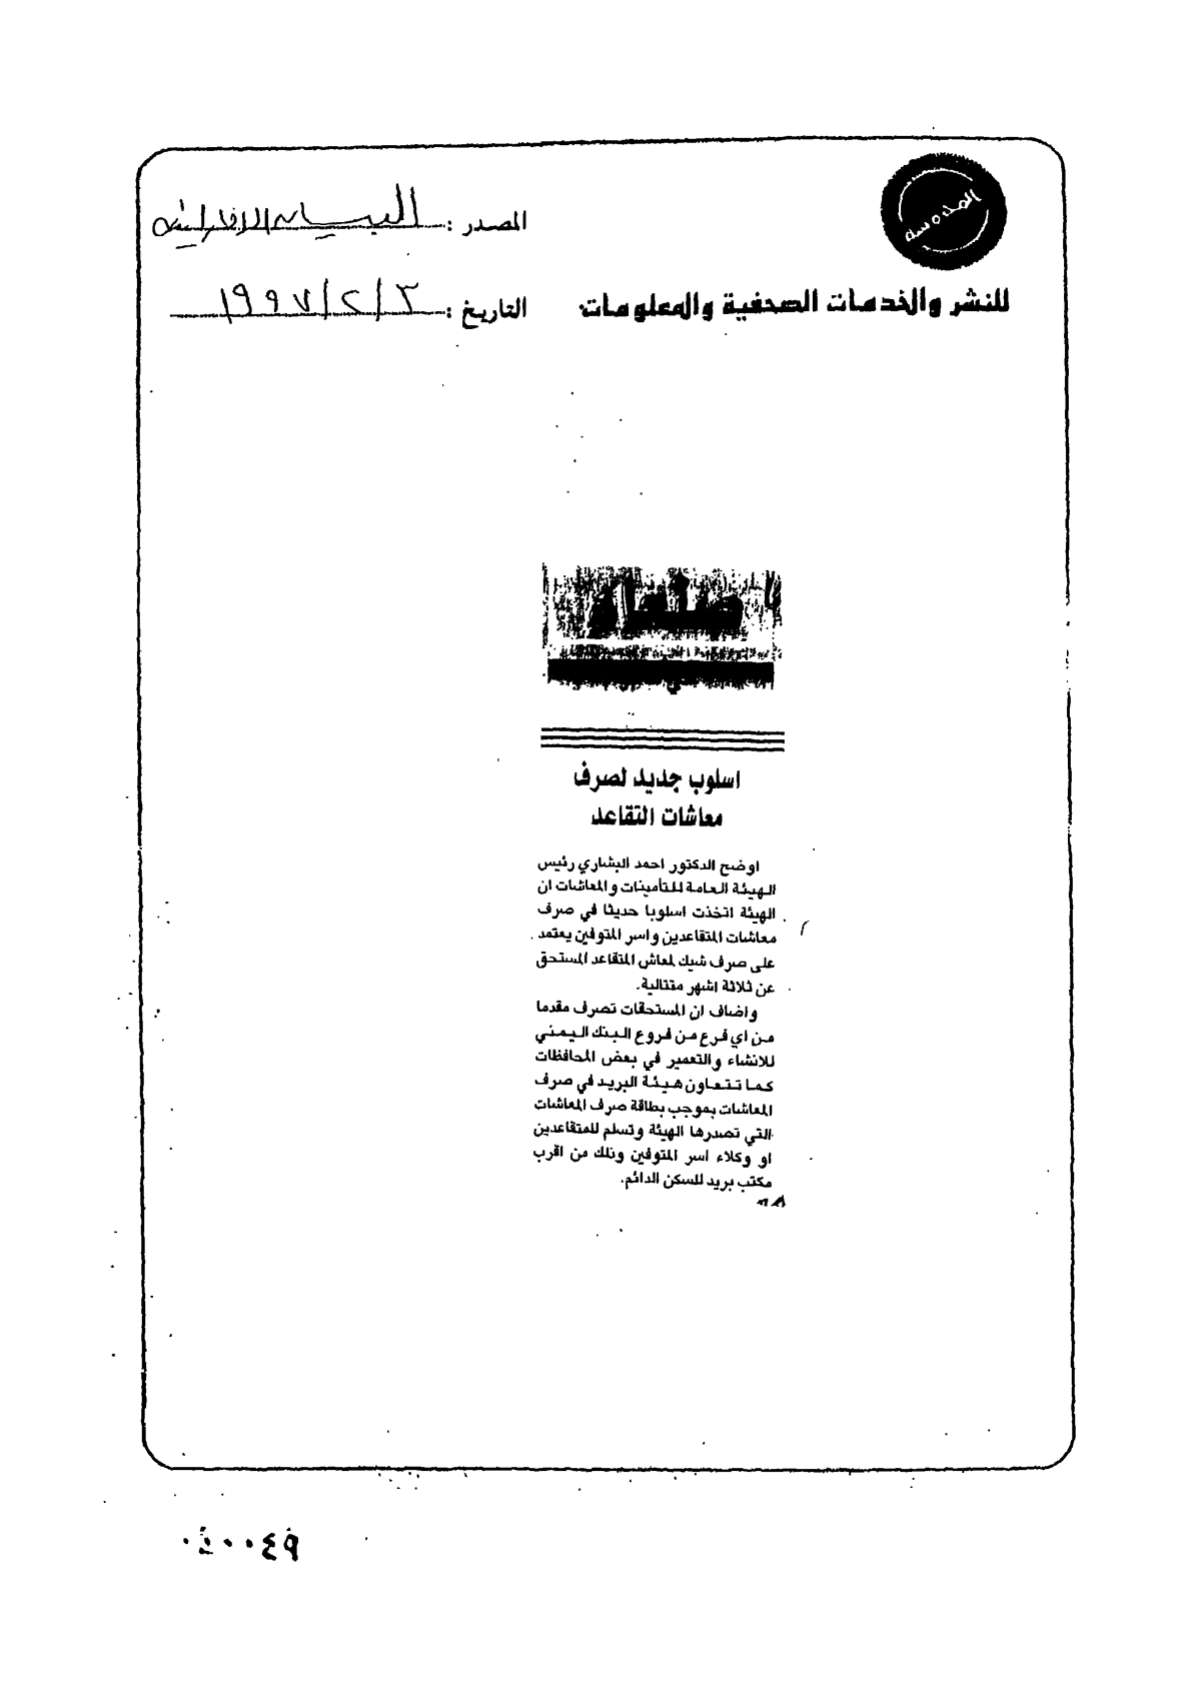 المدوسه
المصدر :
للنشر والخدمات الصحفية والمعلومات
التاريخ : ٣/٢/١٩٩٧
صنعاء
اسلوب جديد لصرف
معاشات التقاعد
اوضح الدكتور احمد البشاري رئيس
الهيئة العامة للتأمينات والمعاشات ان
الهيئة اتخذت اسلوبا حديثا في صرف
معاشات المتقاعدين واسر المتوفين يعتمد
على صرف شيك لمعاش المتقاعد المستحق
عن ثلاثة اشهر متتالية.
واضاف ان المستحقات تصرف مقدما
من اي فرع من فروع البنك اليمني
للانشاء والتعمير في بعض المحافظات
كما تتعاون هيئة البريد في صرف
المعاشات بموجب بطاقة صرف المعاشات
التي تصدرها الهيئة وتسلم للمتقاعدين
او وكلاء اسر المتوفين وذلك من اقرب
مكتب بريد للسكن الدائم.